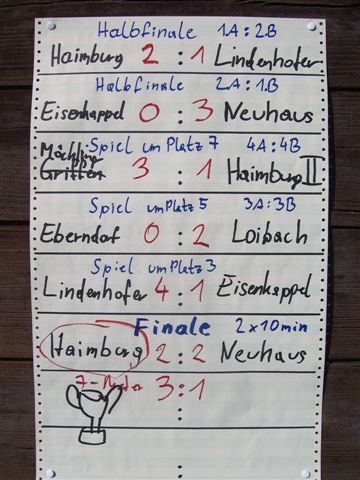 Halbfinale 1A : 2B
Haimburg 2 : 1 Lindenhofer
Halbfinale 2A : 1B
Eisenkappel 0 : 3 Neuhaus
Spiel um Platz 7 4A : 4B
Griffen 3 : 1 Haimburg II
Spiel um Platz 5 3A : 3B
Eberndorf 0 : 2 Loibach
Spiel um Platz 3
Lindenhofer 4 : 1 Eisenkappel
Finale 2 x 10 min
Haimburg 2 : 2 Neuhaus
7-Meter 3 : 1
:
: